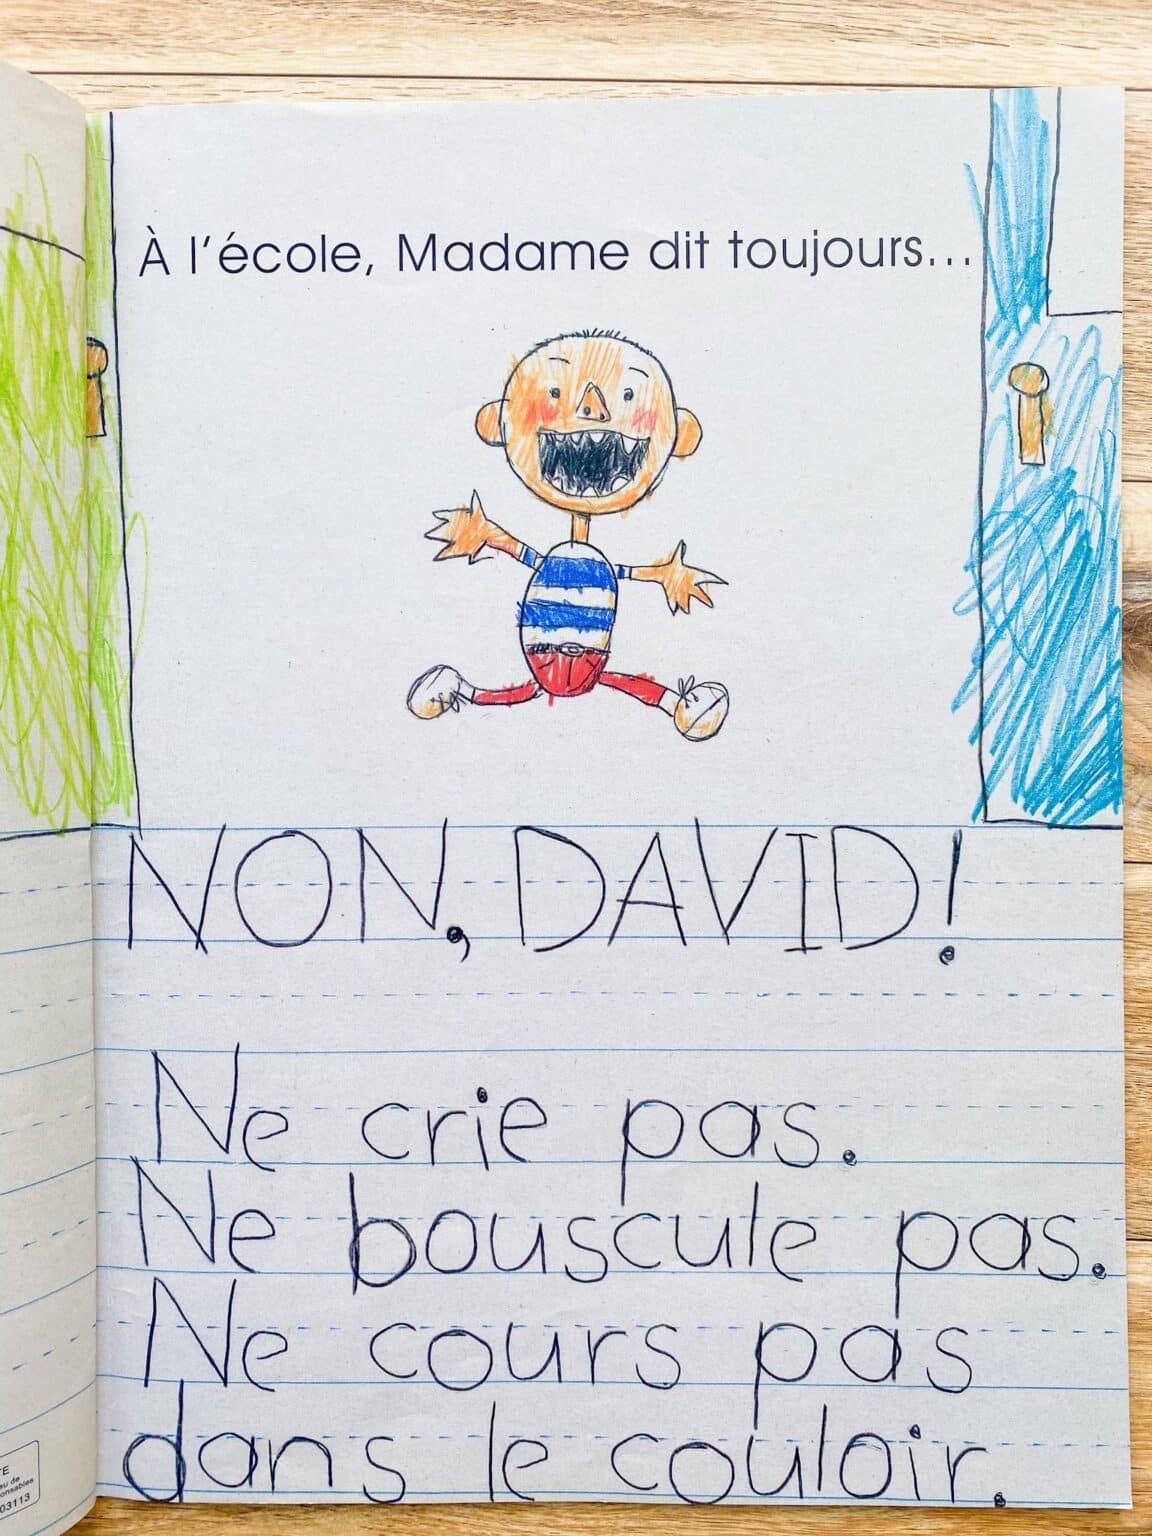 À l'école, Madame dit toujours...
NON, DAVID!
Ne crie pas.
Ne bouscule pas.
Ne cours pas
dans le couloir.
03113